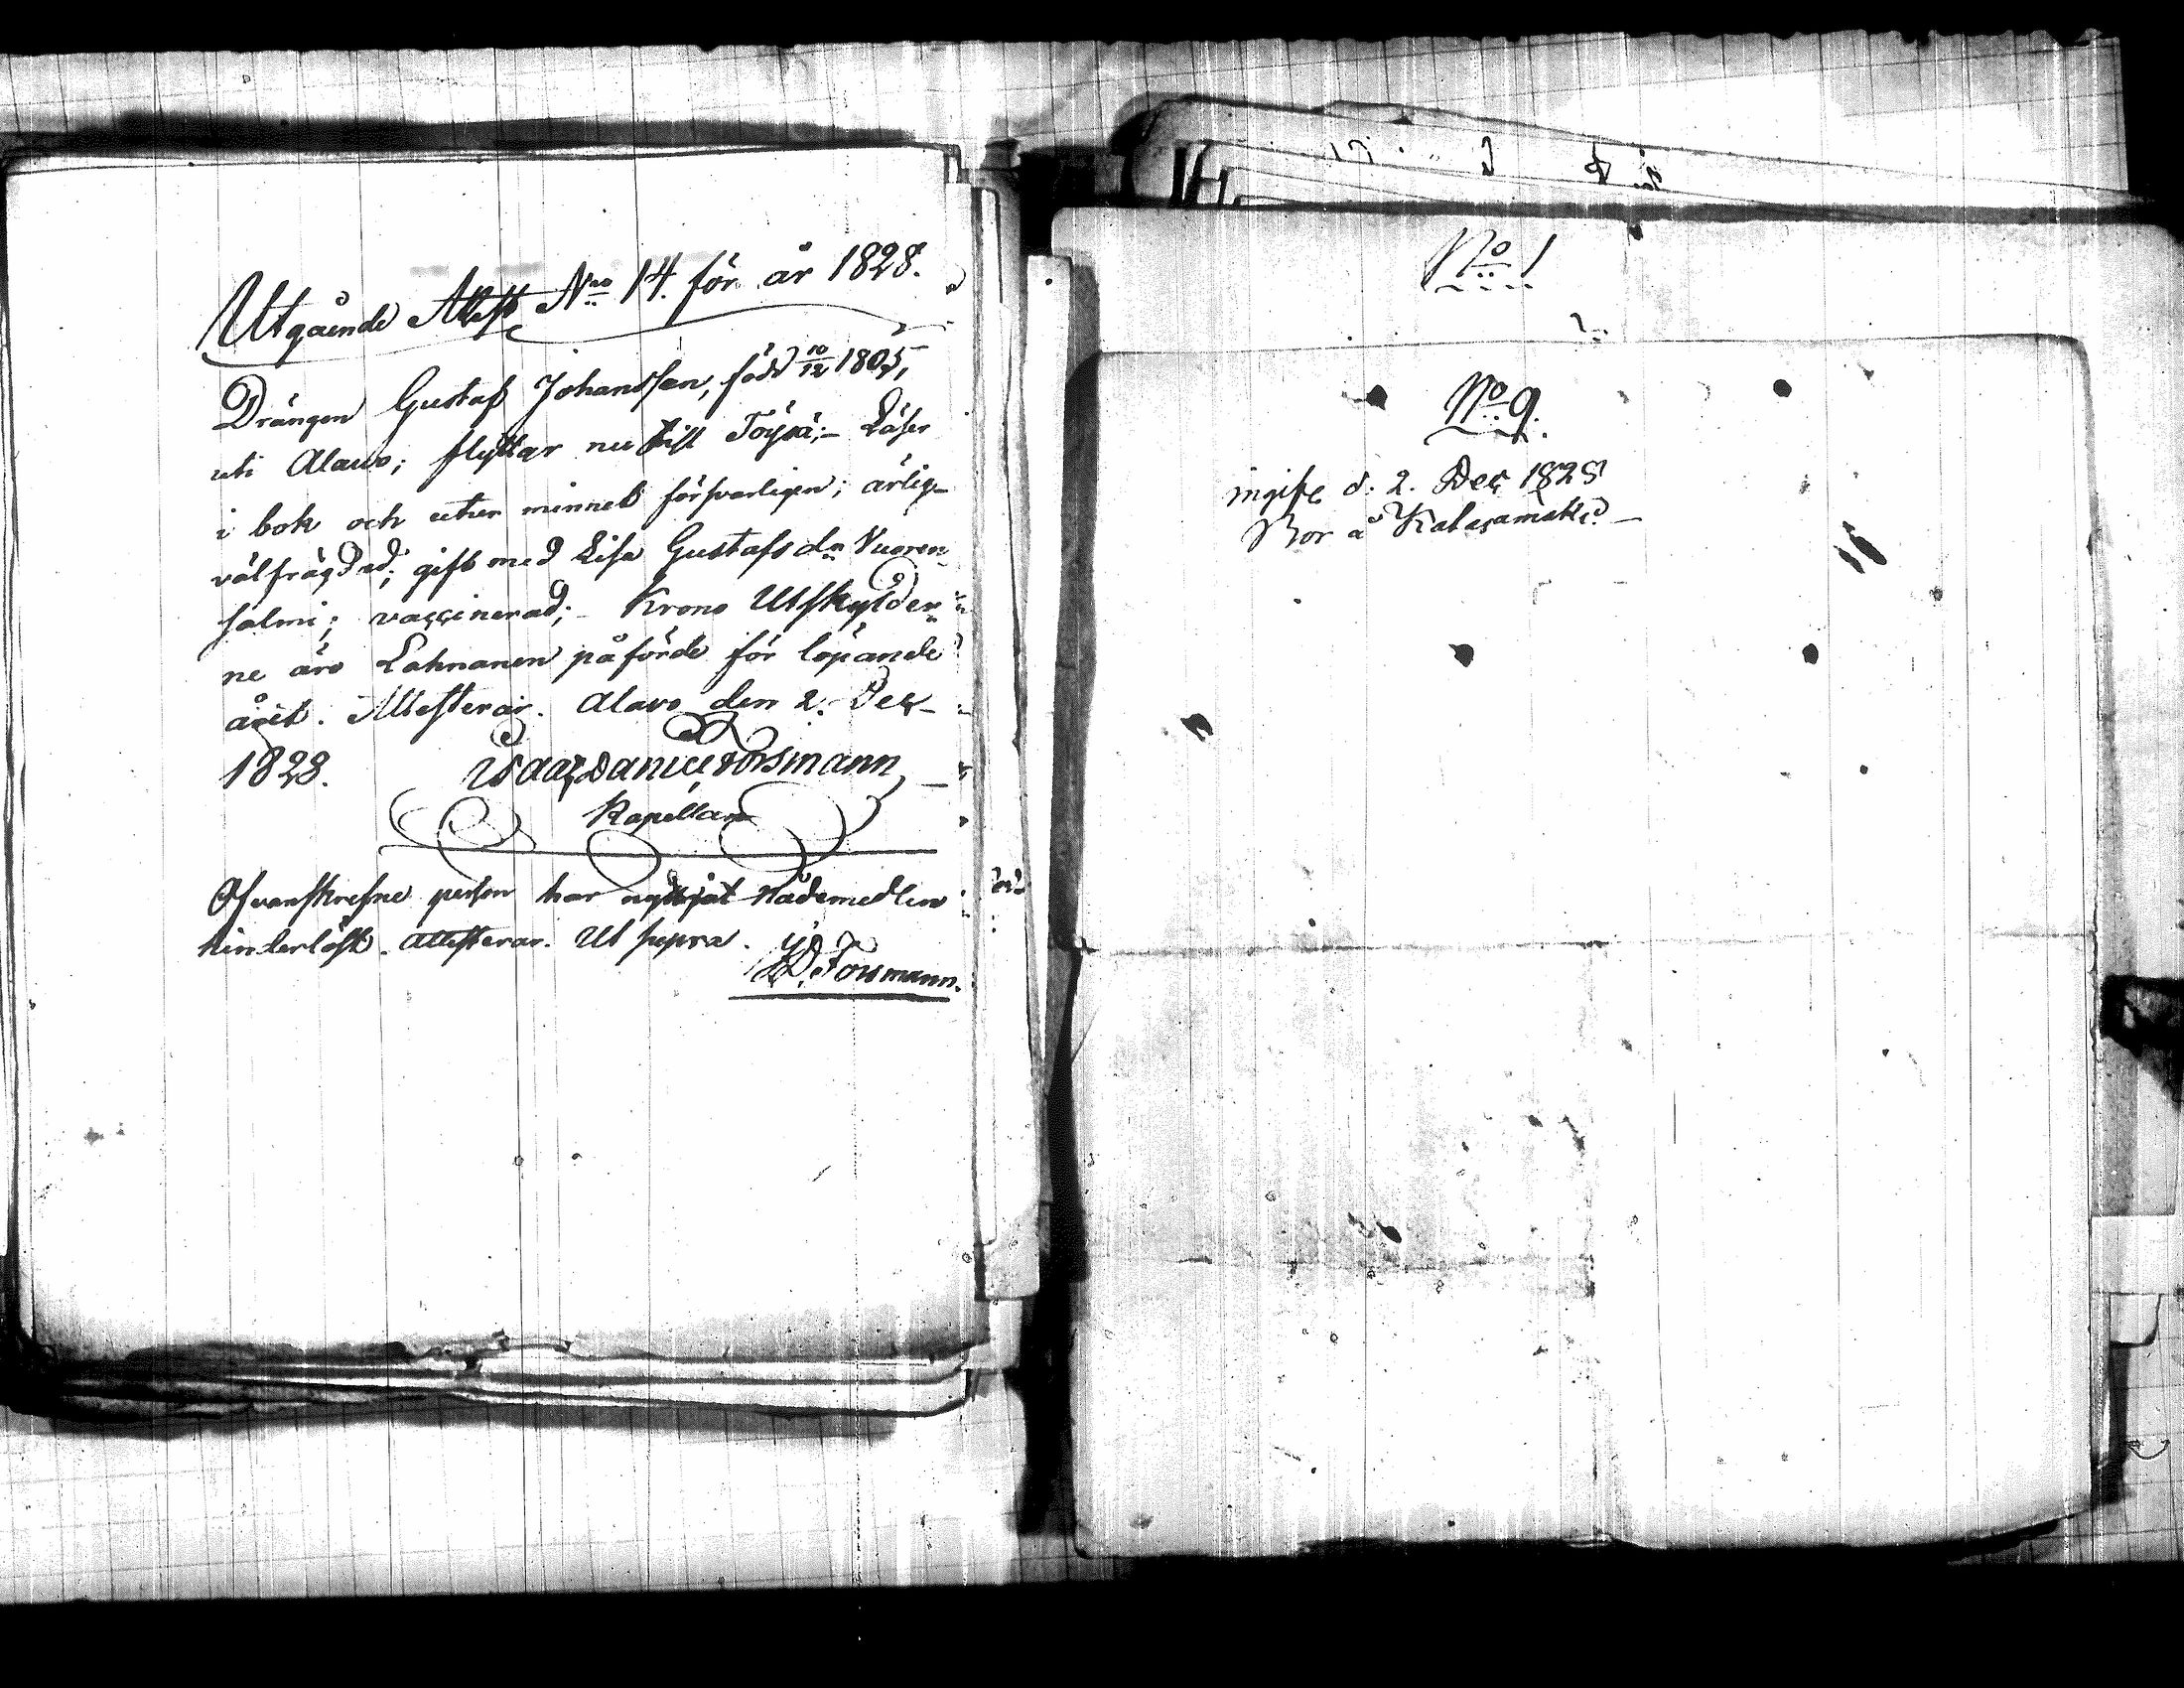 Utgående Attest N:ro 14. för år 1828.
Drängen Gustaf Johansson, född 10/12 1805,
uti Alavo; flyttar nu till Töysä; - Läser
i bok och utur minnet försvarligen; ärlig-
välfrägdad; gift med Lisa Gustafsdr. Vuoren-
salmi; vaccinerad; - Krono Utskylder-
ne äro Lahnanen påförde för löpande
året. Attesterar. Alavo den 2. Dec
1828. Isaac Daniel Forsmann
Kapellan
Ofvanskrefne person har nyttjat Nådemedlen
hinderlöst. attesterar. Ut supra.
I. D. Forsmann.
No 1
No 9.
ingifv. d. 2. Dec 1828
Bor å